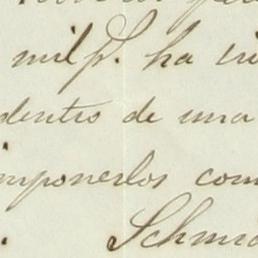 mil p. ha
dentro de una
imponerlos com
. Schmid